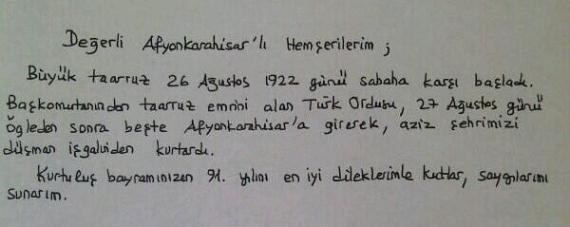 Değerli Afyonkarahisar'lı Hemşerilerim ;
Büyük taarruz 26 Ağustos 1922 günü sabaha karşı başladı.
Başkomutanından taarruz emrini alan Türk Ordusu, 27 Ağustos günü
öğleden sonra beşte Afyonkarahisar'a girerek, aziz şehrimizi
düşman işgalinden kurtardı.
Kurtuluş bayramınızın 91. yılını en iyi dileklerimle kutlar, saygılarımı
sunarım.